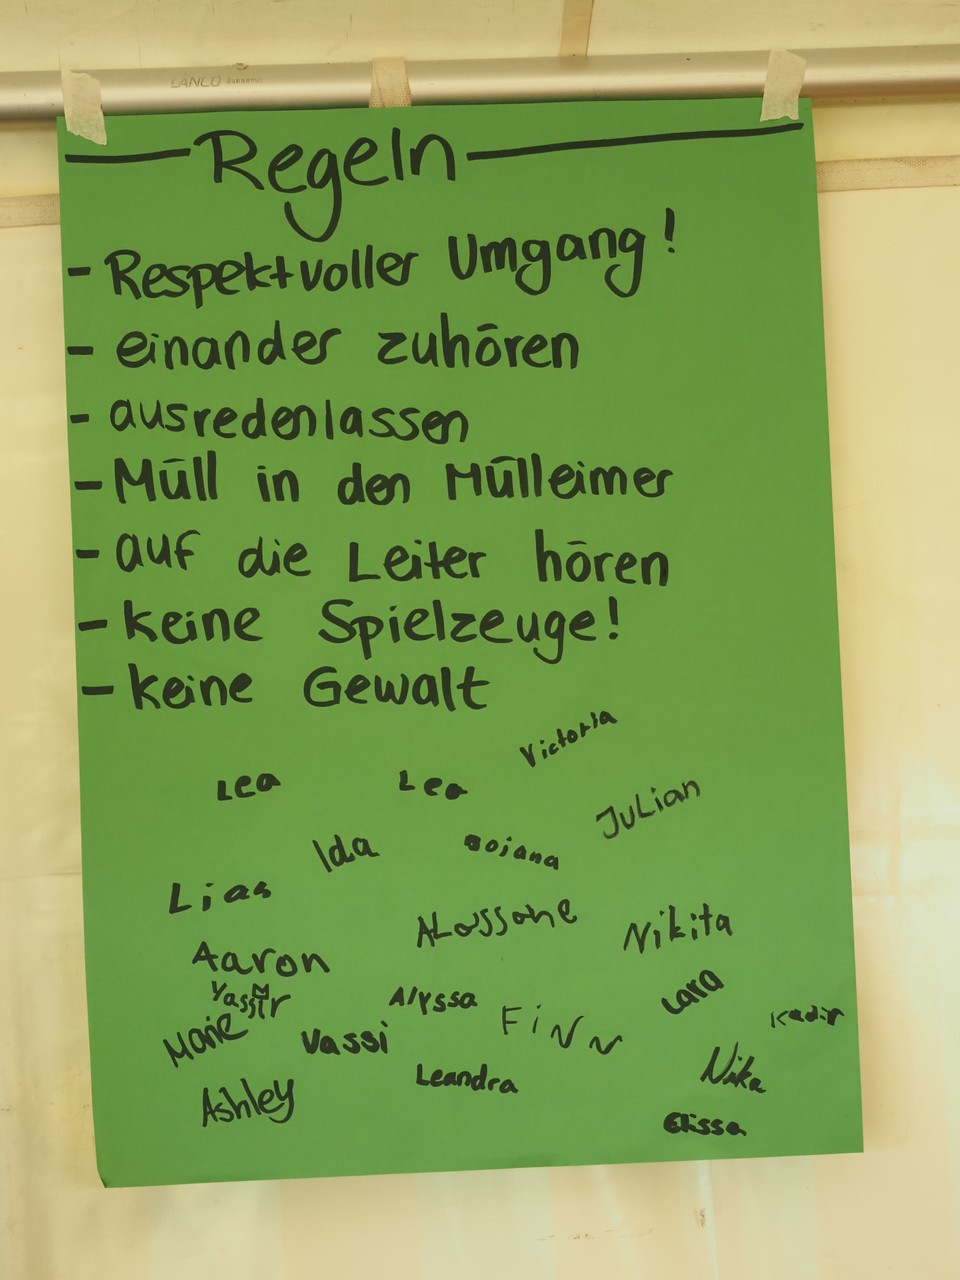 LANCO
Regeln
- Respektvoller Umgang!
- einander zuhören
- ausredenlassen
- Müll in den Mülleimer
- auf die Leiter hören
- keine Spielzeuge!
- keine Gewalt
Victoria
Lea Lea
Julian
Ida Bojana
Lias
Nikita
Aaron
Yassir M
Alyssa
Lara
Finn
Kadir
Marie
Vassi
Leandra
Nika
Ashley
Elissa